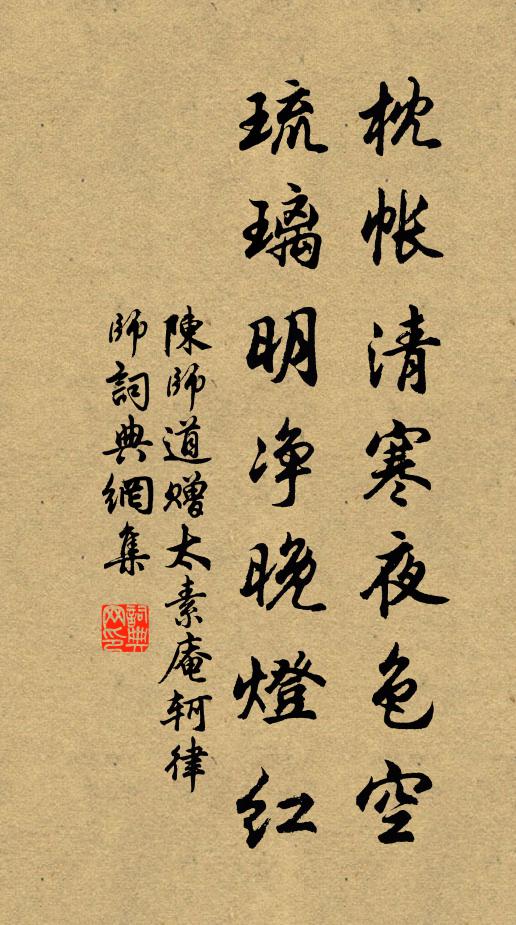 枕帐清寒夜色空
琉璃明净晚燈红
陳師道赠太素庵軻律
師詞典網集
詞典網印